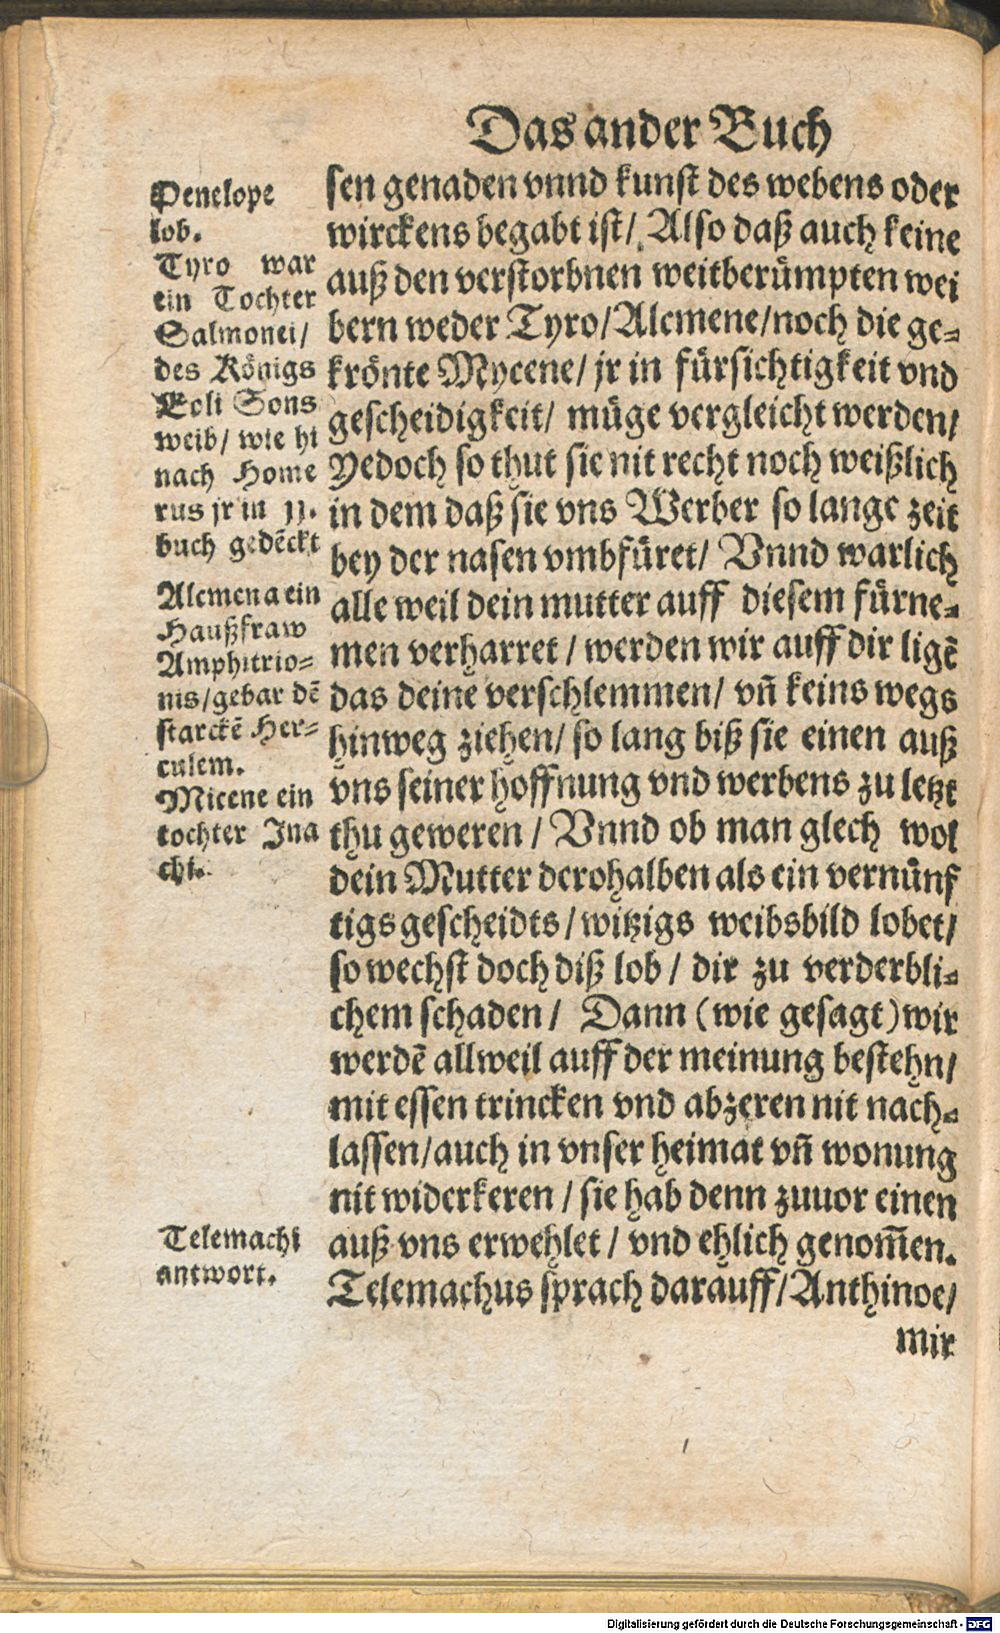 Das ander Buch
Penelope
lob.
Tyro war
ein Tochter
Salmonei/
des Königs
Eoli Sons
weib/ wie hi
nach Home
rus jr in 11.
buch gedẽckt
Alcmena ein
Haußfraw
Amphitrio-
nis/gebar dẽ
starckẽ Her-
culem.
Micene ein
tochter Ina
chi.
Telemachi
antwort.
sen genaden vnnd kunst des webens oder
wirckens begabt ist/ Also daß auch keine
auß den verstorbnen weitberümpten wei
bern weder Tyro/Alcmene/noch die ge-
krönte Mycene/ jr in fürsichtigkeit vnd
gescheidigkeit/ müge vergleicht werden/
Yedoch so thut sie nit recht noch weißlich
in dem daß sie vns Werber so lange zeit
bey der nasen vmbfüret/ Vnnd warlich
alle weil dein mutter auff diesem fürne-
men verharret / werden wir auff dir ligẽ
das deine verschlemmen/ vñ keins wegs
hinweg ziehen/ so lang biß sie einen auß
vns seiner hoffnung vnd werbens zu letzt
thu geweren / Vnnd ob man glech wol
dein Mutter derohalben als ein vernünf
tigs gescheidts/ witzigs weibsbild lobet/
so wechst doch diß lob / dir zu verderbli-
chem schaden / Dann (wie gesagt) wir
werdẽ allweil auff der meinung bestehn/
mit essen trincken vnd abzeren nit nach-
lassen/auch in vnser heimat vñ wonung
nit widerkeren / sie hab denn zuuor einen
auß vns erwehlet / vnd ehlich genom̃en.
Telemachus sprach darauff/Anthinoe/
mir
Digitalisierung gefördert durch die Deutsche Forschungsgemeinschaft - DFG